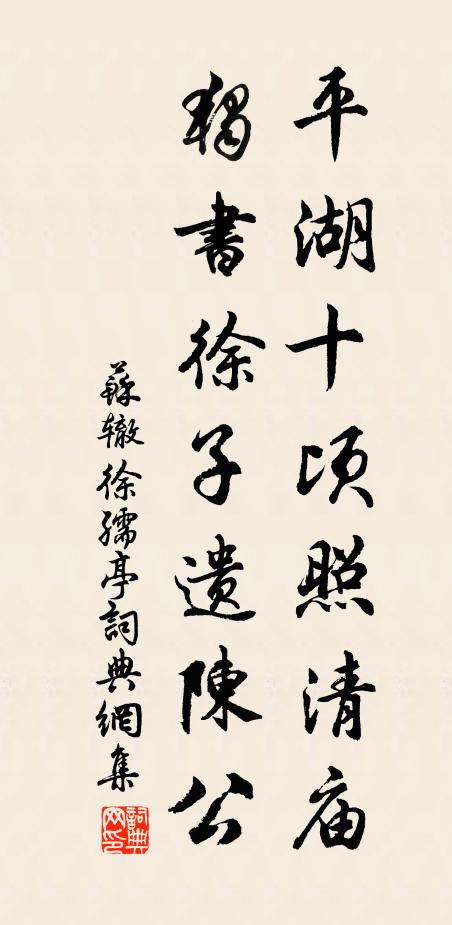 平湖十顷照清庙
獨書徐子遺陳公
蘇辙徐孺亭詞典網集
詞典网印